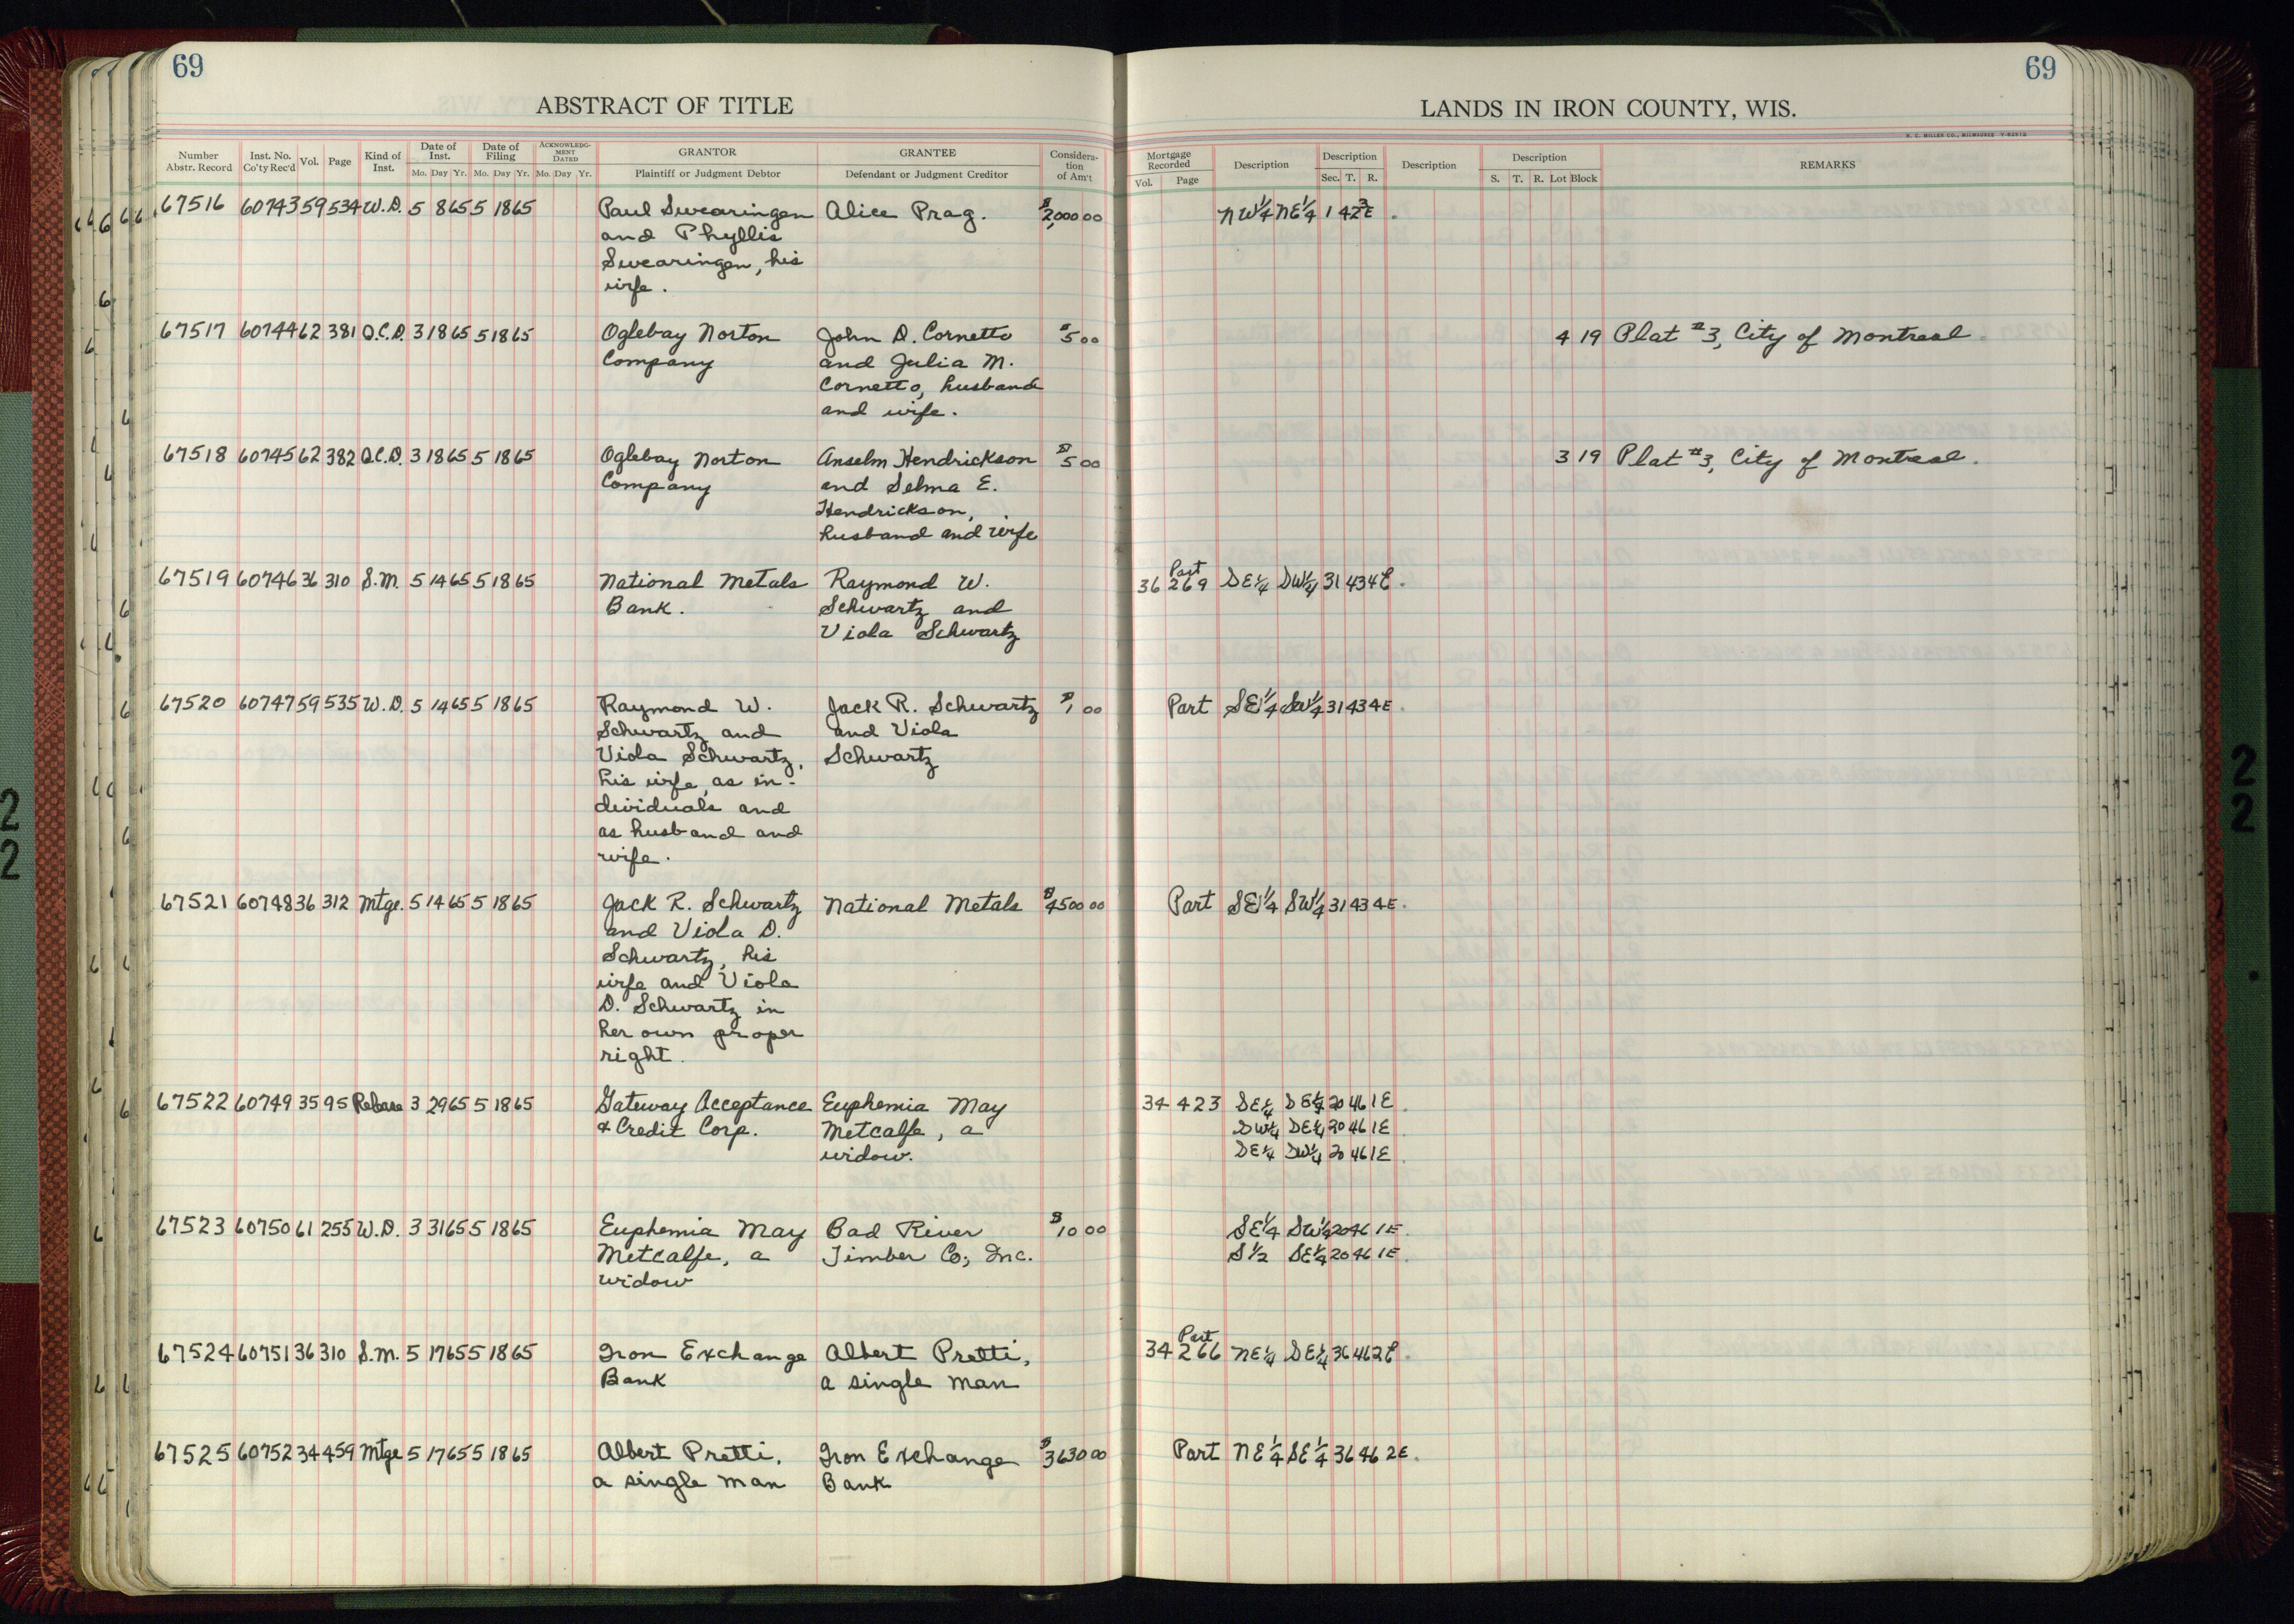 69
69
ABSTRACT OF TITLE
LANDS IN IRON COUNTY, WIS.
H. C. MILLER CO., MILWAUKEE
Number Abstr. Record Inst. No. Co'ty Rec'd Vol. Page Kind of Inst. Date of Inst. Mo. Day Yr. Date of Filing Mo. Day Yr. ACKNOWLEDGMENT DATED Mo. Day Yr. GRANTOR Plaintiff or Judgment Debtor GRANTEE Defendant or Judgment Creditor Consideration of Am't
Mortgage Recorded Vol. Page Description Description Sec. T. R. Description Description S. T. R. Lot Block REMARKS
67516 60743 59 534 W.D. 5 8 65 5 18 65 Paul Swearingen Alice Prag. $2,000 00 NW1/4 NE1/4 1 42 3E
and Phyllis
Swearingen, his
wife.
67517 60744 62 381 Q.C.D. 3 18 65 5 18 65 Oglebay Norton John D. Cornetto $5 00 4 19 Plat #3, City of Montreal.
Company and Julia M.
Cornetto, husband
and wife.
67518 60745 62 382 Q.C.D. 3 18 65 5 18 65 Oglebay Norton Anselm Hendrickson $5 00 3 19 Plat #3, City of Montreal.
Company and Selma E.
Hendrickson,
husband and wife
67519 60746 36 310 S.M. 5 14 65 5 18 65 National Metals Raymond W. 36 269 Part SE1/4 SW1/4 31 43 4E
Bank. Schwartz and
Viola Schwartz
67520 60747 59 535 W.D. 5 14 65 5 18 65 Raymond W. Jack R. Schwartz $1 00 Part SE1/4 SW1/4 31 43 4E
Schwartz and and Viola
Viola Schwartz, Schwartz
his wife, as in-
dividuals and
as husband and
wife.
67521 60748 36 312 Mtge. 5 14 65 5 18 65 Jack R. Schwartz National Metals $4500 00 Part SE1/4 SW1/4 31 43 4E
and Viola D.
Schwartz, his
wife and Viola
D. Schwartz in
her own proper
right.
67522 60749 35 95 Release 3 29 65 5 18 65 Gateway Acceptance Euphemia May 34 423 SE1/4 SE1/4 20 46 1E
& Credit Corp. Metcalfe, a SW1/4 SE1/4 20 46 1E
widow. SE1/4 SW1/4 20 46 1E
67523 60750 61 255 W.D. 3 31 65 5 18 65 Euphemia May Bad River $10 00 SE1/4 SW1/4 20 46 1E
Metcalfe, a Timber Co., Inc. S1/2 SE1/4 20 46 1E
widow
67524 60751 36 310 S.M. 5 17 65 5 18 65 Iron Exchange Albert Pretti, 34 266 Part NE1/4 SE1/4 36 46 2E
Bank a single man
67525 60752 34 459 Mtge 5 17 65 5 18 65 Albert Pretti, Iron Exchange $3630 00 Part NE1/4 SE1/4 36 46 2E
a single man Bank
22
22